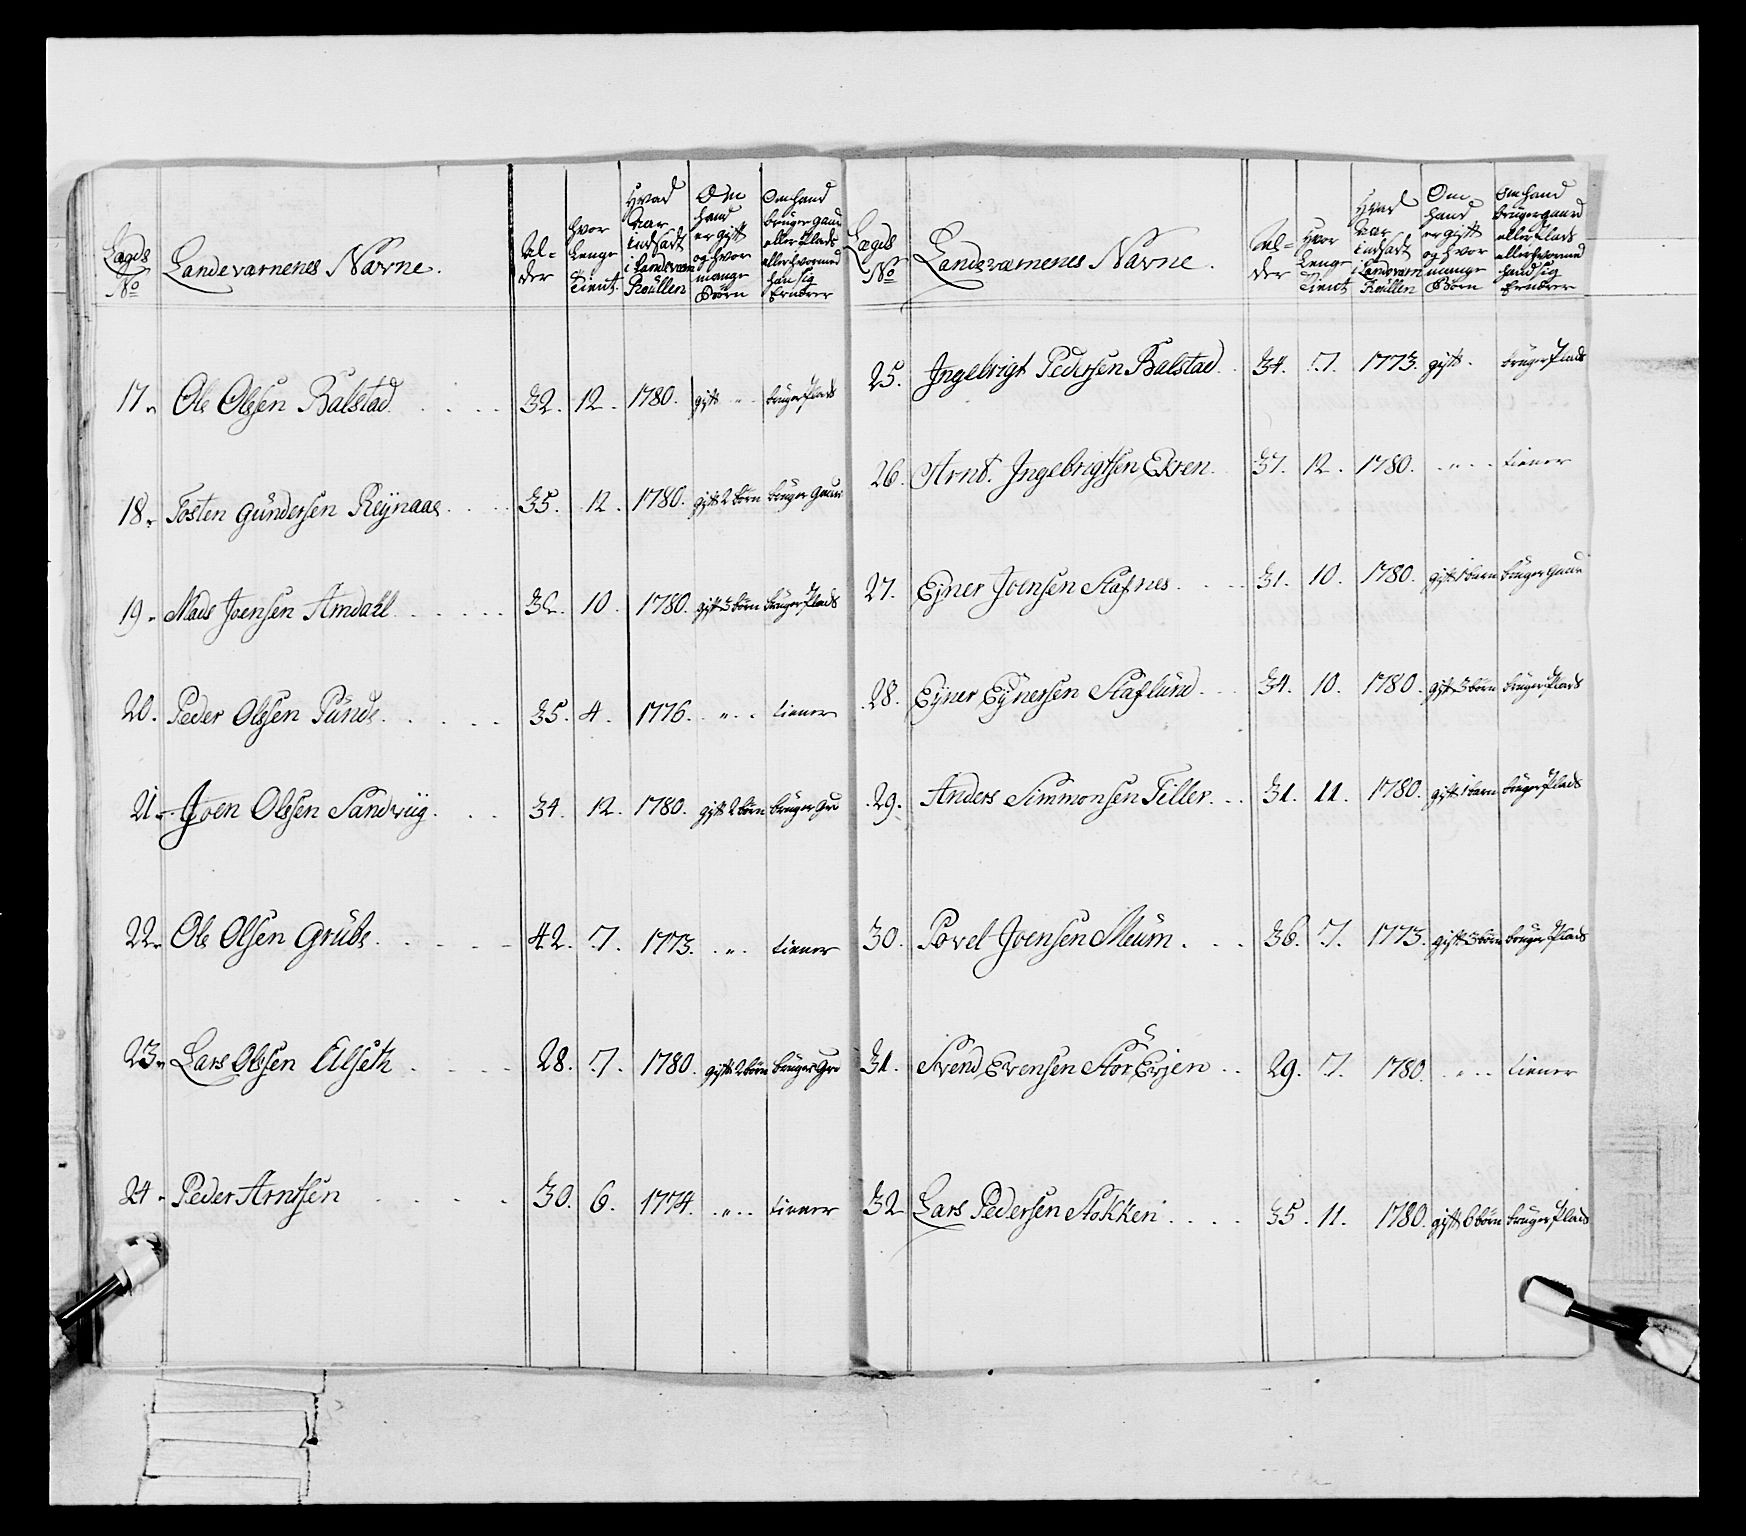 Lægds No
Landeværnenes Navne.
Al-
der
hvor
lenge
tient.
Hvad
Aar
indsadt
i Landværn
Roullen
Om
hand
er gift
og hvor
mange
Børn
Om hand
bruger gaard
eller Plads
eller hvormed
han sig
Ernærer
17. Ole Olsen Balstad 32. 12. 1780. gift " bruger Plads
18. Tosten Gundersen Reijnaas 35. 12. 1780. gift 2 børn bruger Gaard
19. Mads Joensen Amdahl 10. 1780. gift 3 børn bruger Plads
20. Peder Olssen Punde. 35. 4. 1776. " tiener
21. Joen Olssen Sandviig. 34. 12. 1780. gift 2 børn bruger Grd
22. Ole Olsen Grube. 42. 7. 1773. " tiener
23. Lars Olssen Elseth 28. 7. 1780. gift 2 børn bruger Grd
24. Peder Arntsen 30. 6. 1774. " tiener
Lægds No
Landeværnenes Navne.
Al-
der
Hvor
lenge
tient
Hvad
Aar
indsadt
i Landværn
Roullen
Om
hand
er gift
og hvor
mange
Børn
Om hand
bruger gaard
eller Plads
eller hvormed
hand sig
Ernærer
25. Ingebrigt Pedersen Balstad 34. 7. 1773. gift. bruger Plads
26. Arnt. Ingebrigtsen Ekren. 37. 12. 1780. " tiener
27. Ejner Joensen Stafnes. 31. 10. 1780. gift 1 barn bruger Gaard
28. Ejner Ejnersen Staflund. 34. 10. 1780. gift 3 børn bruger Plads
29. Anders Simmonsen Tiller. 31. 11. 1780. gift 1 barn bruger Plads
30. Povel Joensen Meum. 36. 7. 1773. gift 3 børn bruger Plads
31. Svend Evensen Stor Evjen 29. 7. 1780. " tiener
32 Lars Pedersen Stokken. 35. 11. 1780. gift 6 børn bruger Plads